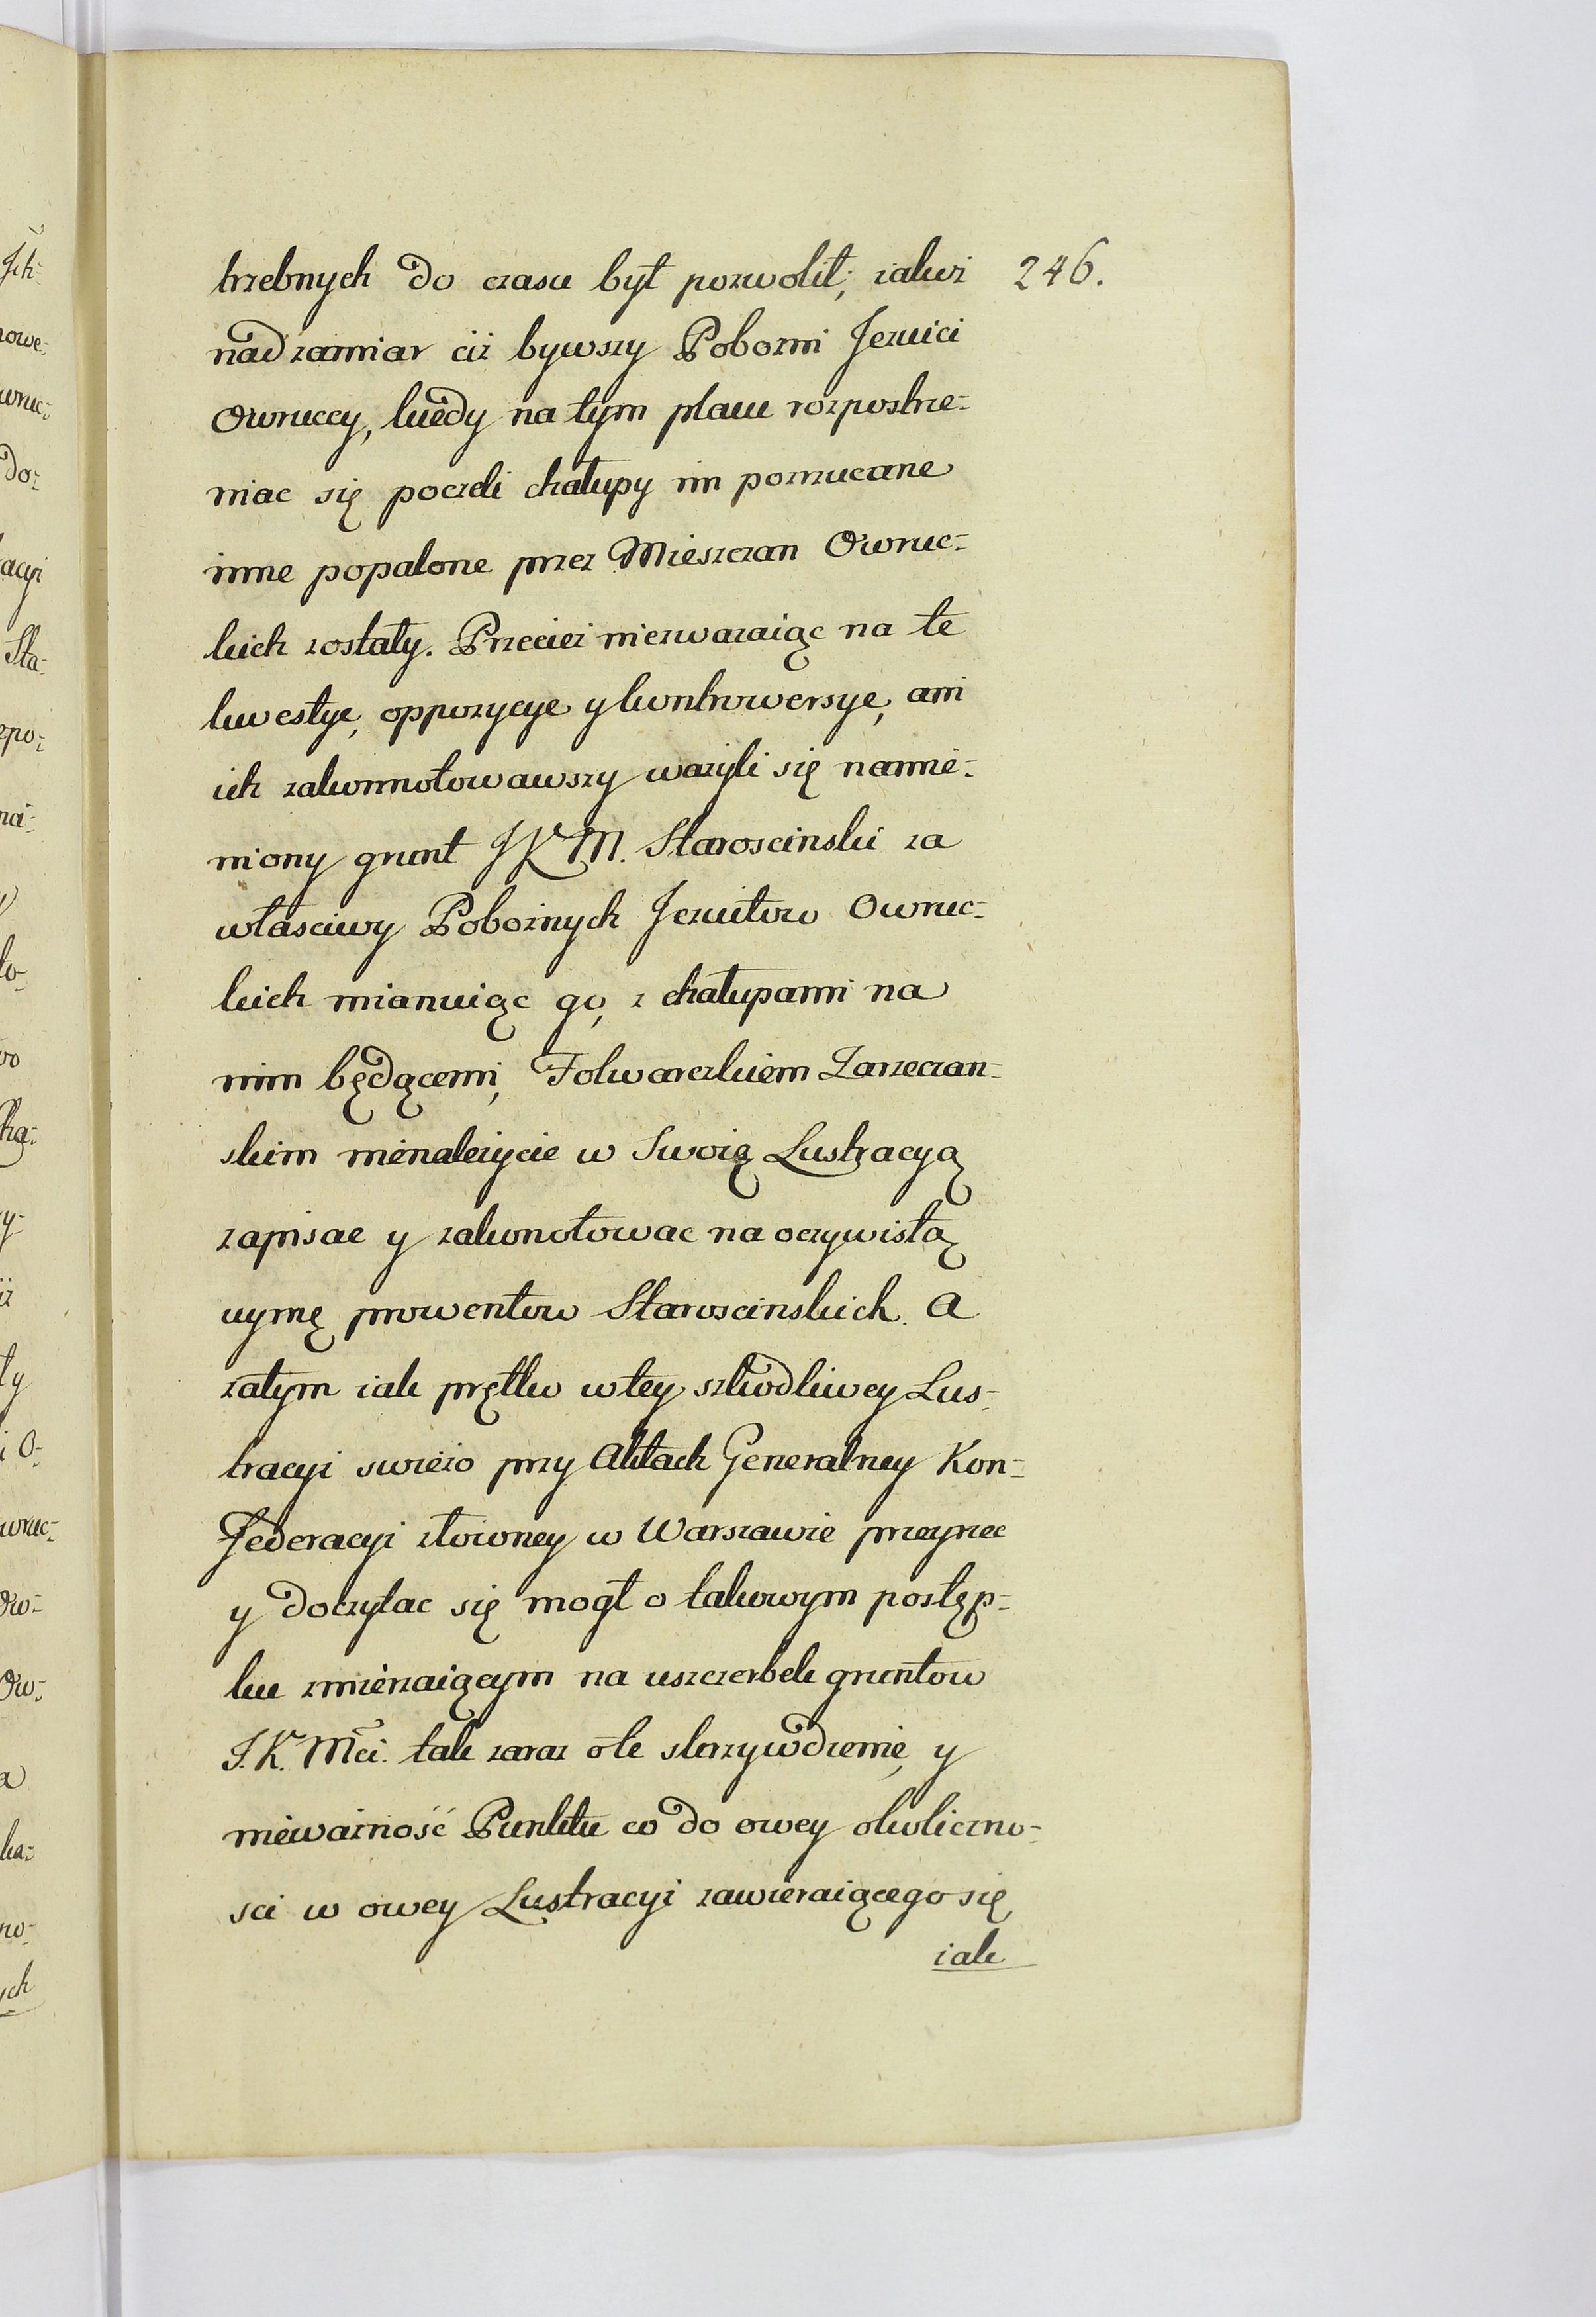 trzebnych do czasu był pozwolił; iakoż 246.
nad zamiar ciż bywszy Pobożni Jezuici
Owruccy, kiedy na tym placu rozpostrze-
niac się poczeli chałupy im porzucane
inne popalone przez Mieszczan Owruc-
kich zostały. Przecież niezwazaiąc na te
kwestye, oppozycye y kontrowersye, ani
ich zakonnotowawszy ważyli się namie-
niony grunt JKM. Staroscinski za
własciwy Pobożnych Jezuitow Owruc-
kich mianuiąc go, z chałupami na
nim będącemi, Folwarczkiem Zarzeczan-
skim nienależycie w Swoię Lustracyą
zapisac y zakonotowac na oczywistą
uymę prowentow Staroscinskich. A
zatym iak prętko w tey szkodliwey Lus-
tracyi swieżo przy Aktach Generalney Kon-
federacyi złożoney w Warszawie przeyrzec
y doczytac się mogł o takowym postęp-
ku zmierzaiącym na uszczerbek gruntow
J. K. Mći. tak zaraz o te skrzywdzenie, y
nieważność Punktu co do owey okoliczno-
sci w owey Lustracyi zawieraiącego się,
iak